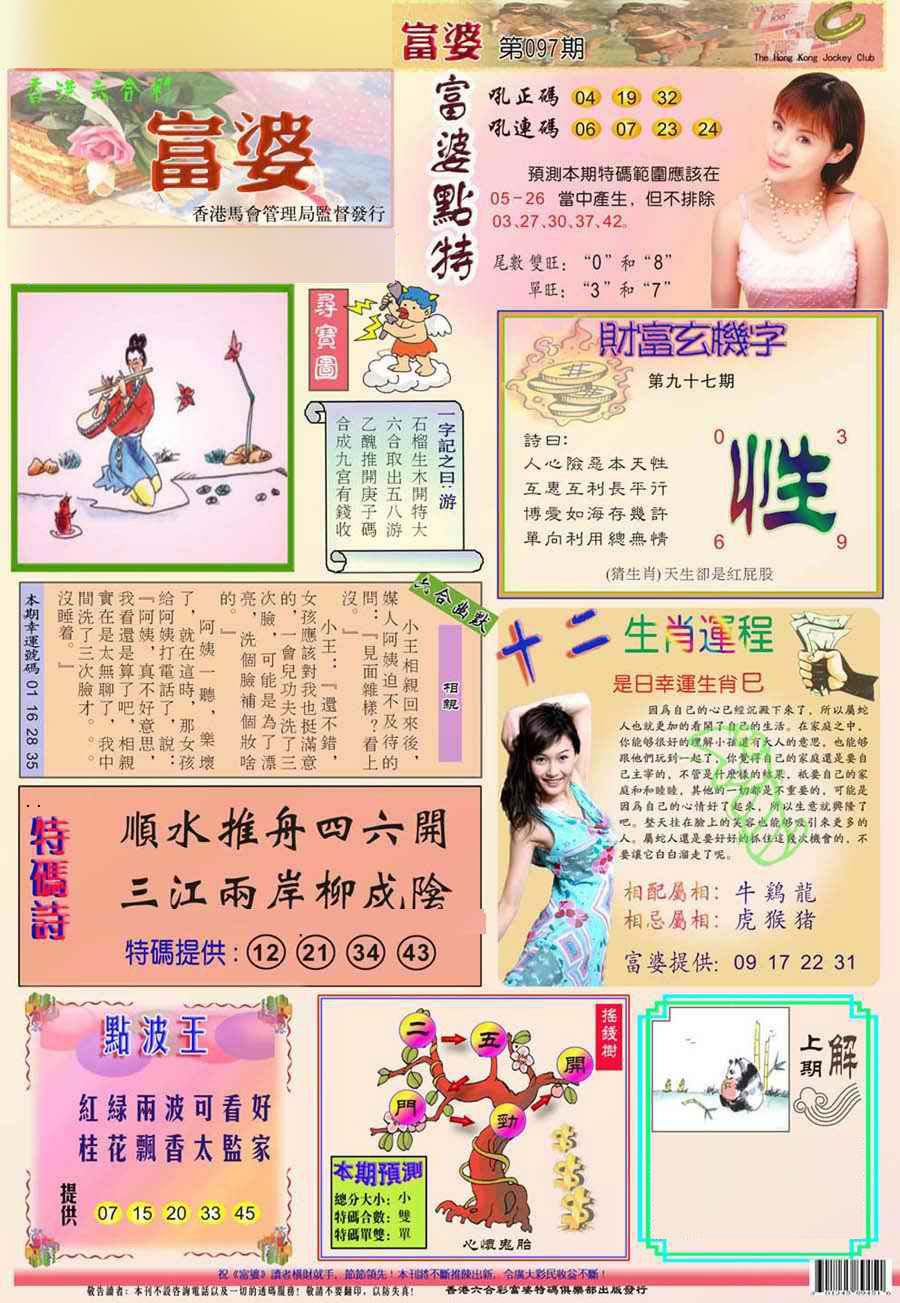 富婆 第097期
The Hong Kong Jockey Club
香港六合彩
富婆
香港馬會管理局監督發行
富婆點特
吼正碼 04 19 32
吼連碼 06 07 23 24
預測本期特碼範圍應該在
05-26 當中產生,但不排除
03,27,30,37,42。
尾數雙旺:“0”和“8”
單旺:“3”和“7”
尋寶圖
一字記之曰:游
石榴生木開特大
六合取出五八游
乙醜推開庚子碼
合成九宮有錢收
財富玄機字
第九十七期
詩曰:
人心險惡本天性
互惠互利長平行
博愛如海存幾許
單向利用總無情
0 3
性
6 9
(猜生肖)天生卻是紅屁股
六合幽默
相親
小王相親回來後,
媒人阿姨迫不及待的
問:『見面雜樣?看上
沒。』
小王:『還不錯,
女孩應該對我也挺滿意
的,一會兒功夫洗了三
次臉,可能是為了漂
亮,洗個臉補個妝啥
的。』
阿姨一聽,樂壞
了,就在這時,那女孩
給阿姨打電話了,說:
『阿姨,真不好意思,
我看還是算了吧,相親
實在是太無聊了,我中
間洗了三次臉才。。
沒睡着。』
本期幸運號碼 01 16 28 35
十二生肖運程
是日幸運生肖巳
因為自己的心已經沉澱下來了,所以屬蛇
人也就更加的看開了自己的生活。在家庭之中,
你能够很好的理解小孩還有大人的意思,也能够
跟他們玩到一起了,你覺得自己的家庭還是要自
己主宰的,不管是什麼樣的結果,祇要自己的家
庭和和睦睦,其他的一切都是不重要的,可能是
因為自己的心情好了起來,所以生意就興隆了
吧。整天挂在臉上的笑容也能够吸引來更多的
人。屬蛇人還是要好好的抓住這幾次機會的,不
要讓它白白溜走了呢。
相配屬相:牛鷄龍
相忌屬相:虎猴猪
富婆提供:09 17 22 31
特碼詩
順水推舟四六開
三江兩岸柳成陰
特碼提供:12 21 34 43
點波王
紅綠兩波可看好
桂花飄香太監家
提供 07 15 20 33 45
搖錢樹
二 五
開
門 勁
本期預測
總分大小:小
特碼合數:雙
特碼單雙:單
心懷鬼胎
上期解
祝《富婆》讀者橫財就手,節節領先!本刊將不斷推陳出新,令廣大彩民收益不斷!
敬告讀者:本刊不設咨詢電話以及一切的透碼服務!敬請不要翻印,以防失真! 香港六合彩富婆特碼俱樂部出版發行